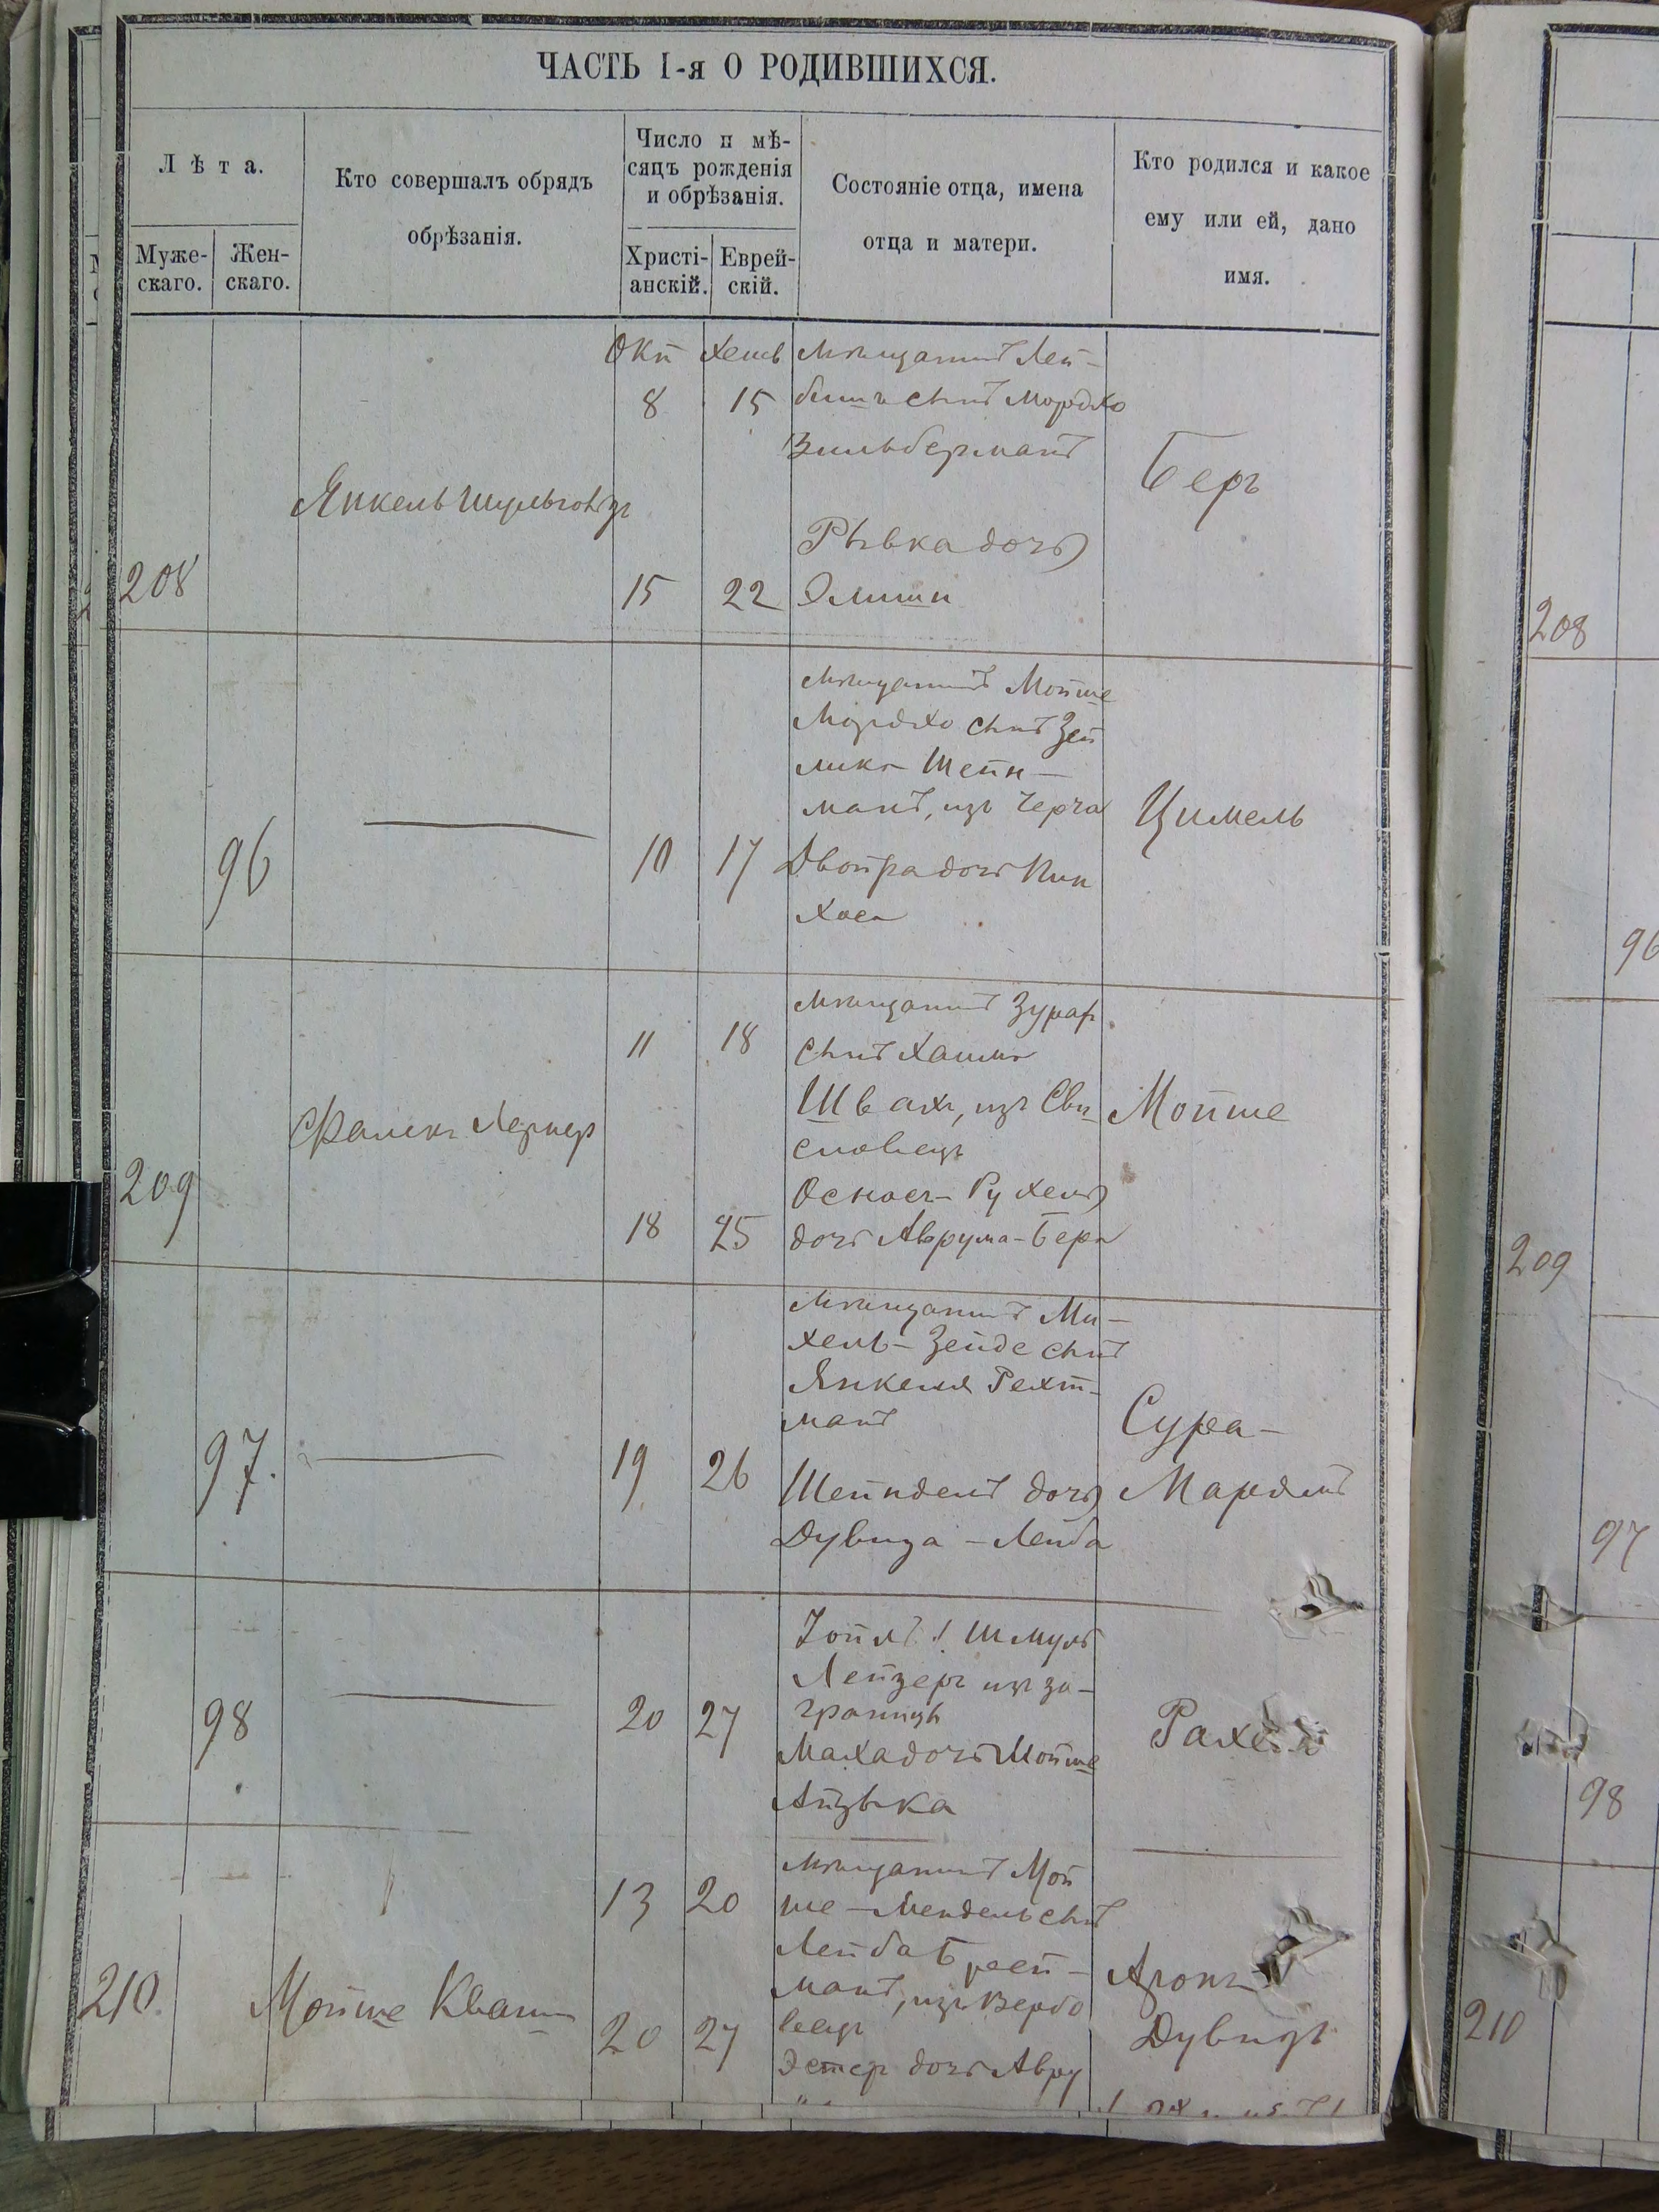 ЧАСТЬ I-я О РОДИВШИХСЯ.
Лѣта.
Муже-
скаго.
Жен-
скаго.
Кто совершалъ обрядъ
обрѣзанія.
Число и мѣ-
сяцъ рожденія
и обрѣзанія.
Христі-
анскій.
Еврей-
скій.
Состояніе отца, имена
отца и матери.
Кто родился и какое
ему или ей, дано
имя.
208
Янкель
Окт
8
15
Хешв
15
22
Мѣщанинъ Лей-
бишъ сынъ Мордко
Зильберманъ
Рывка дочь
Элиши
Беръ
96
10
17
Мѣщанинъ Мойше
Мордко сынъ Зей
лика Шейн-
манъ, изъ
Двойра дочь Пин
хоса
Цимель
209
Фалекъ Лернеръ
11
18
18
25
Мѣщанинъ
сынъ Хаима
Швахъ, изъ
Рухель
дочь Аврума-Бера
Мойше
97.
19
26
Мѣщанинъ Ми-
хель-Зейде сынъ
Янкеля Рехт-
манъ
Шейндель дочь
Дувида-Лейба
Сура-
98
20
27
Шмуль
Лейзеръ изъ за-
границы
Маха дочь Мойше
Айзыка
Рахель
210.
Мойше Кваша
13
20
20
27
Мѣщанинъ Мой
ше-Мендель сынъ
Лейба Брей-
манъ, изъ Вербо
вецъ
Эстер дочь Авру
Аронъ
Дувидъ
208
96
209
97
98
210